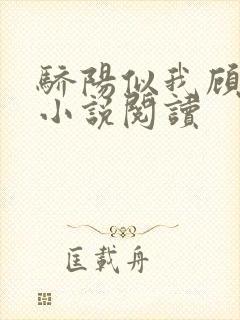 驕陽似我顧
小說閱讀
匡載舟